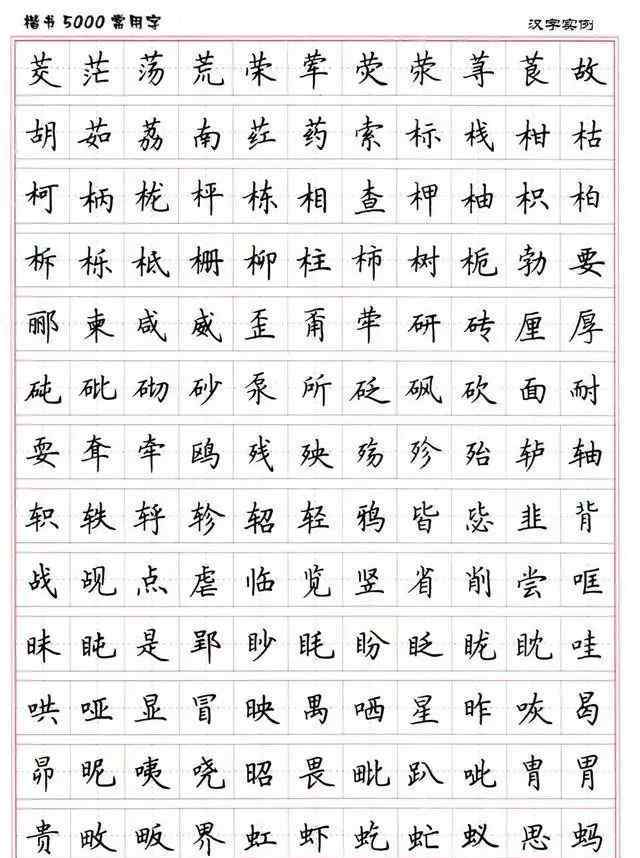 楷书5000常用字 汉字实例
茭茫荡荒荣荤荧荥荨茛故
胡茹荔南荭药索标栈柑枯
柯柄栊枰栋相查柙柚枳柏
柝栎柢栅柳柱柿树栀勃要
郦柬咸威歪甭荦研砖厘厚
砘砒砌砂泵所砭砜砍面耐
耍耷牵鸥残殃殇殄殆轳轴
轵轶轷轸轺轻鸦皆毖韭背
战觇点虐临览竖省削尝哐
昧盹是郢眇眊盼眨眬眈哇
哄哑显冒映禺哂星昨咴曷
昴昵咦哓昭畏毗趴呲胄胃
贵畋畈界虹虾虼虻蚁思蚂